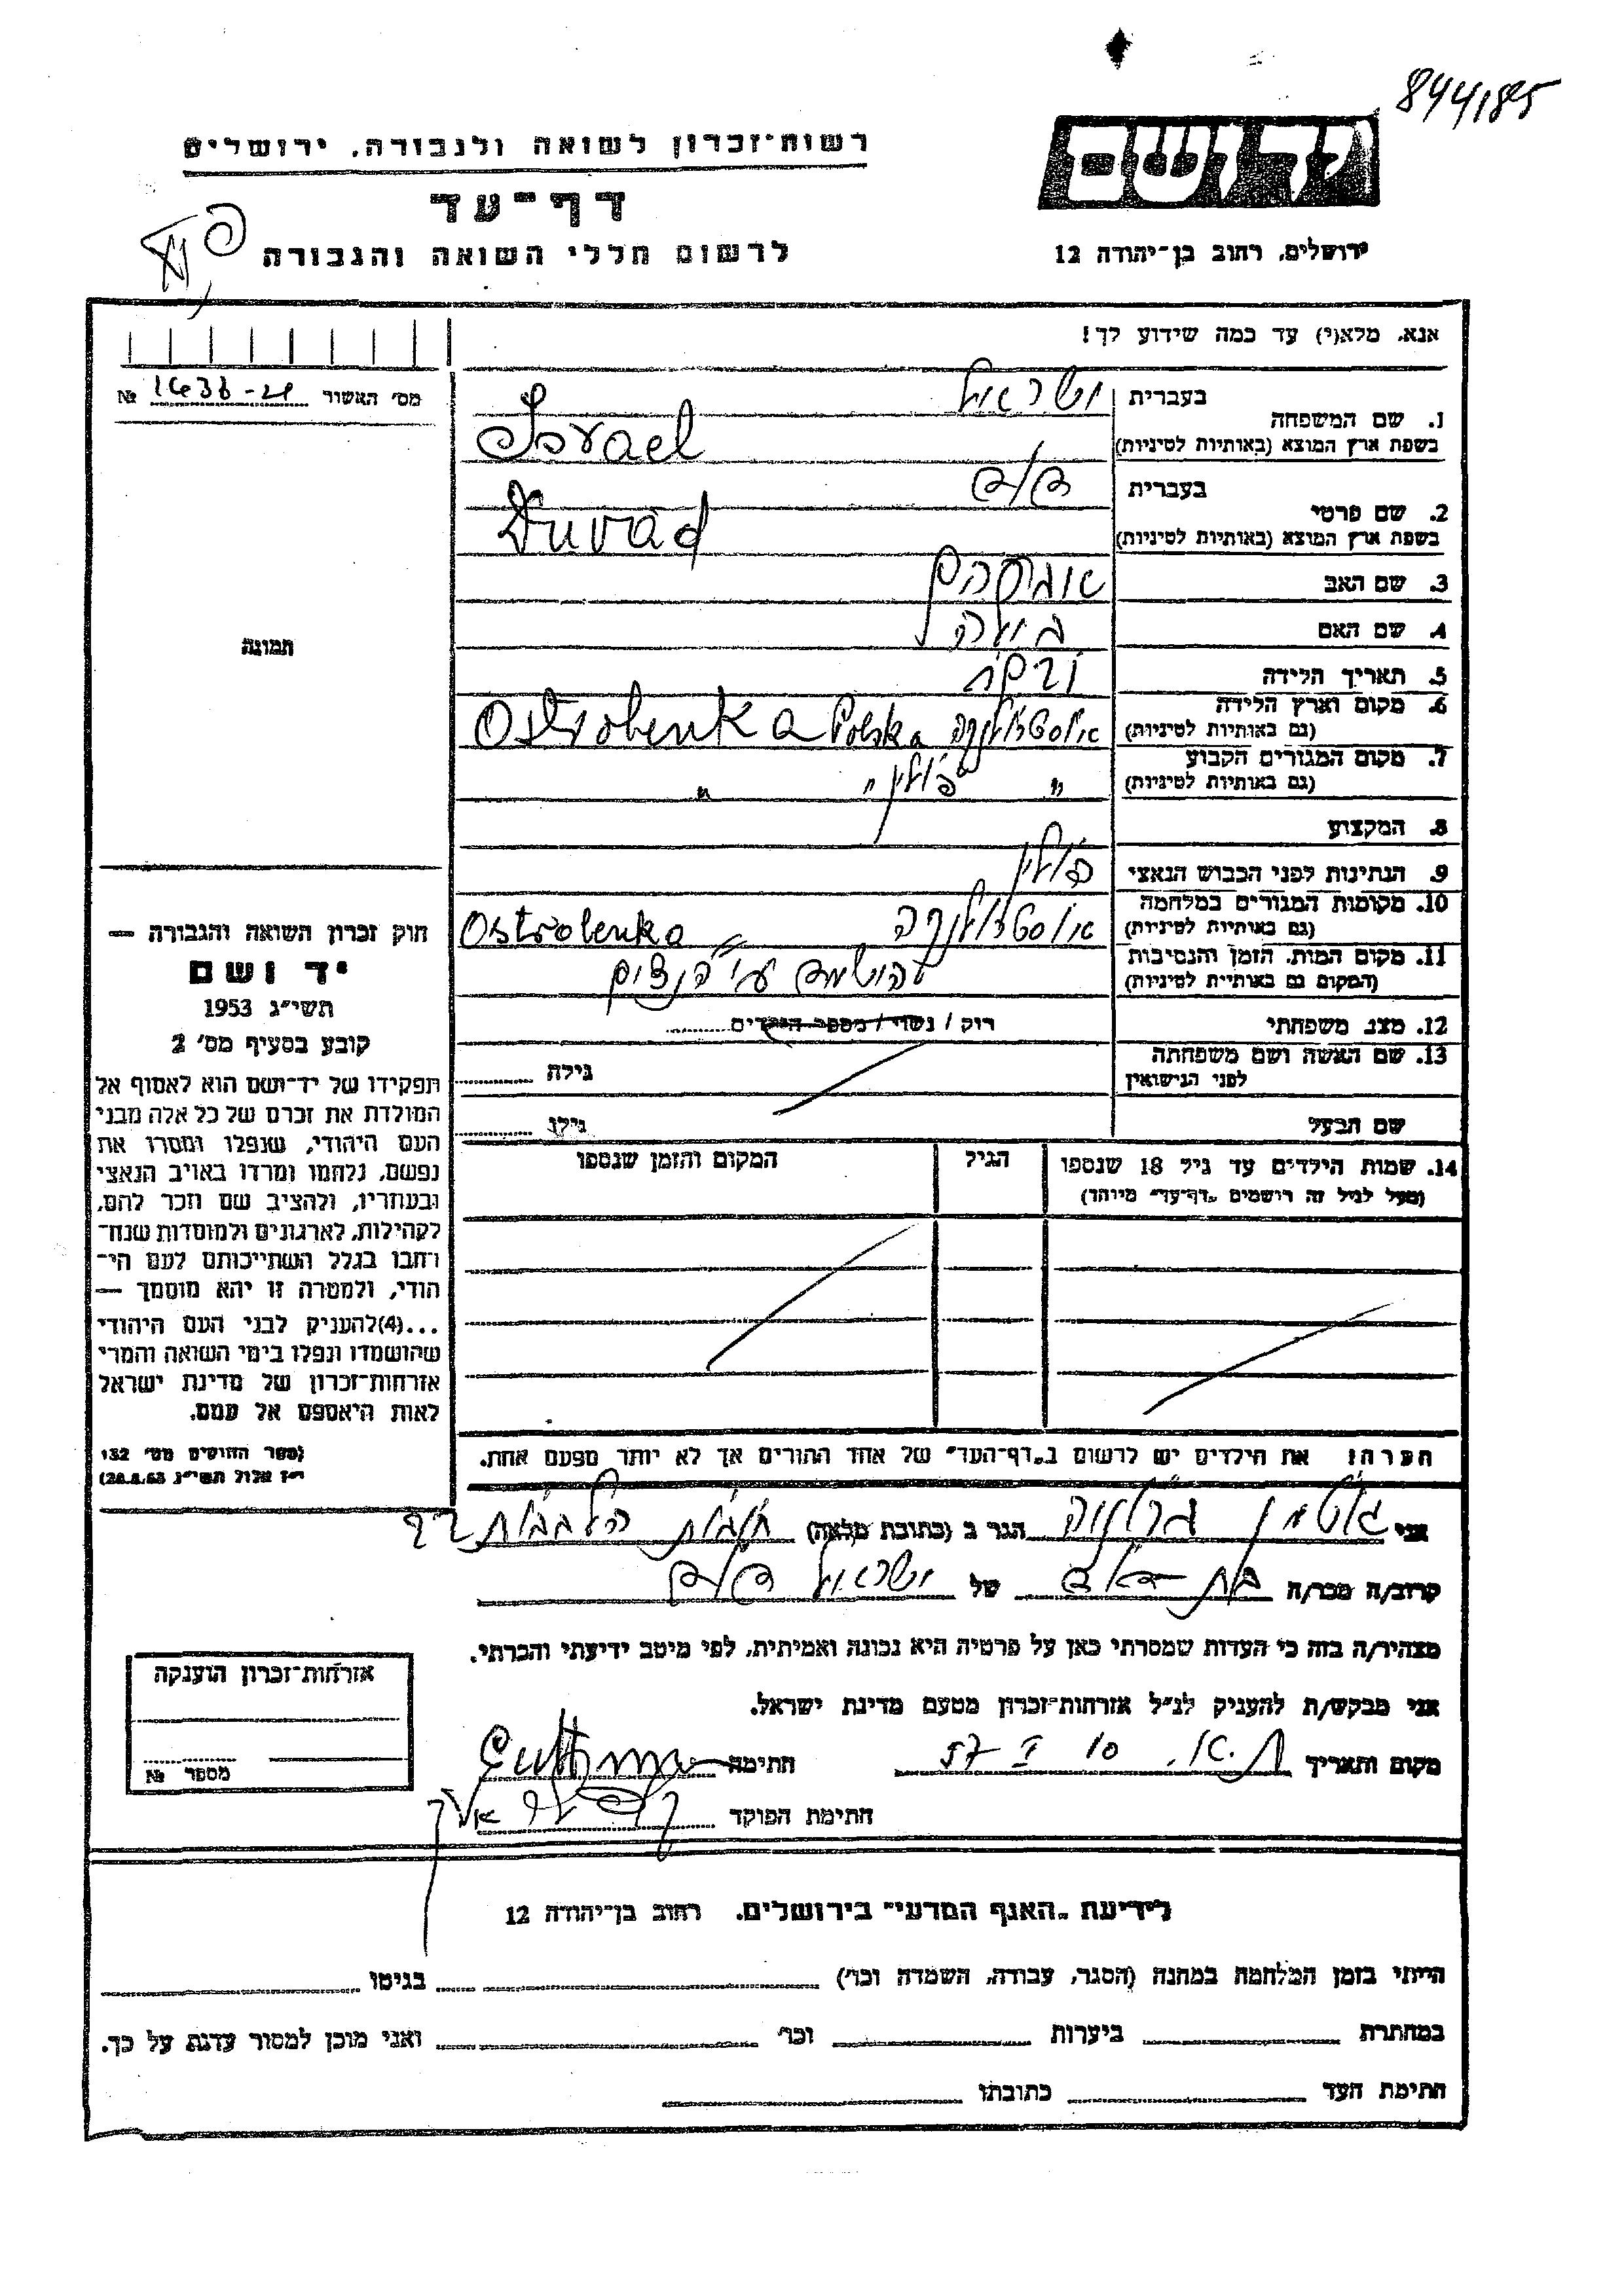 844185
רשות־זכרון לשואה ולגבורה, ירושלים
יד ושם
דף־עד
לרשום חללי השואה והגבורה
ירושלים, רחוב בן־יהודה 12
אנא, מלא(י) עד כמה שידוע לך!
מס׳ האשור 1436-21 №
1. שם המשפחה
בעברית ישראל
בשפת ארץ המוצא (באותיות לטיניות) Israel
2. שם פרטי
בעברית דוד
בשפת ארץ המוצא (באותיות לטיניות) Duvad
3. שם האב אברהם
4. שם האם
5. תאריך הלידה
6. מקום וארץ הלידה
(גם באותיות לטיניות) אוסטרולנקה Ostrolenka Polska
7. מקום המגורים הקבוע
(גם באותיות לטיניות) " פולין " "
8. המקצוע
9. הנתינות לפני הכבוש הנאצי פולין
10. מקומות המגורים במלחמה
(גם באותיות לטיניות) אוסטרולנקה Ostrolenka
11. מקום המות, הזמן והנסיבות
(המקום גם באותיית לטיניות) הושמד ע״י הנצים
12. מצב משפחתי רוק / נשוי / מספר הילדים
13. שם האשה ושם משפחתה
לפני הנישואין גילה
שם הבעל גילו
14. שמות הילדים עד גיל 18 שנספו הגיל המקום והזמן שנספו
(מעל לגיל זה רושמים „דף־עד״ מיוחד)
הערה: את הילדים יש לרשום ב„דף־העד״ של אחד ההורים אך לא יותר מפעם אחת.
תמונה
חוק זכרון השואה והגבורה —
יד ושם
תשי״ג 1953
קובע בסעיף מס׳ 2
תפקידו של יד־ושם הוא לאסוף אל
המולדת את זכרם של כל אלה מבני
העם היהודי, שנפלו ומסרו את
נפשם, נלחמו ומרדו באויב הנאצי
ובעוזריו, ולהציב שם וזכר להם,
לקהילות, לארגונים ולמוסדות שנח־
רחבו בגלל השתייכותם לעם הי־
הודי, ולמטרה זו יהא מוסמך —
...(4)להעניק לבני העם היהודי
שהושמדו ונפלו בימי השואה והמרי
אזרחות־זכרון של מדינת ישראל
לאות היאספם אל עמם.
(ספר החוקים מס׳ 132
י״ז אלול תשי״ג 28.8.53)
אני גוטמן הגר ב (כתובת מלאה)
קרוב/ה מכר/ה בת דוד של ישראל דוד
מצהיר/ה בזה כי העדות שמסרתי כאן על פרטיה היא נכונה ואמיתית, לפי מיטב ידיעתי והכרתי.
אני מבקש/ת להעניק לנ״ל אזרחות־זכרון מטעם מדינת ישראל.
מקום ותאריך ת.א. 10 I 57 חתימה Guttman
חתימת הפוקד
אזרחות־זכרון הוענקה
מספר №
לידיעת „האגף המדעי״ בירושלים. רחוב בן־יהודה 12
הייתי בזמן המלחמה במחנה (הסגר, עבודה, השמדה וכו׳) בגיטו
במחתרת ביערות וכו׳ ואני מוכן למסור עדות על כך.
חתימת העד כתובתו